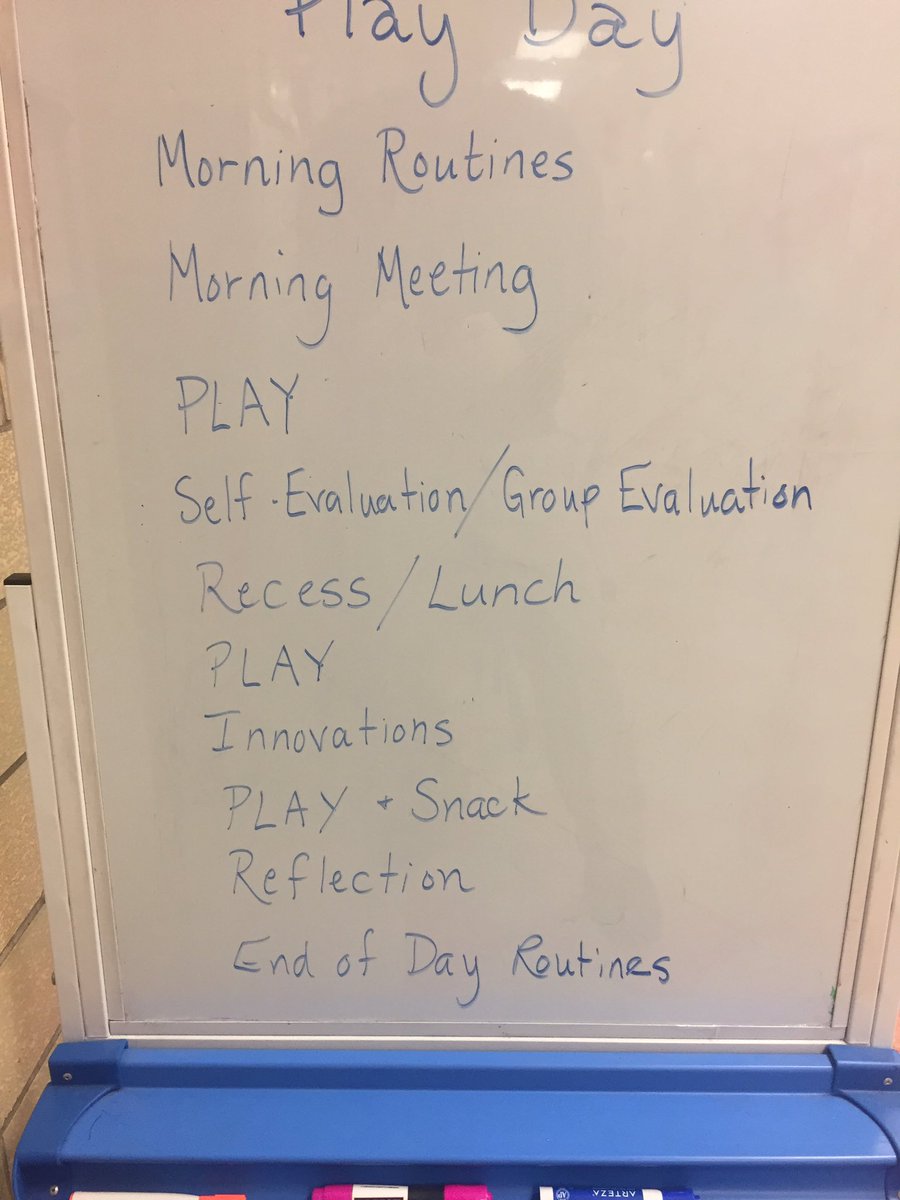 Play Day
Morning Routines
Morning Meeting
PLAY
Self-Evaluation/Group Evaluation
Recess/Lunch
PLAY
Innovations
PLAY + Snack
Reflection
End of Day Routines
ARTEZA